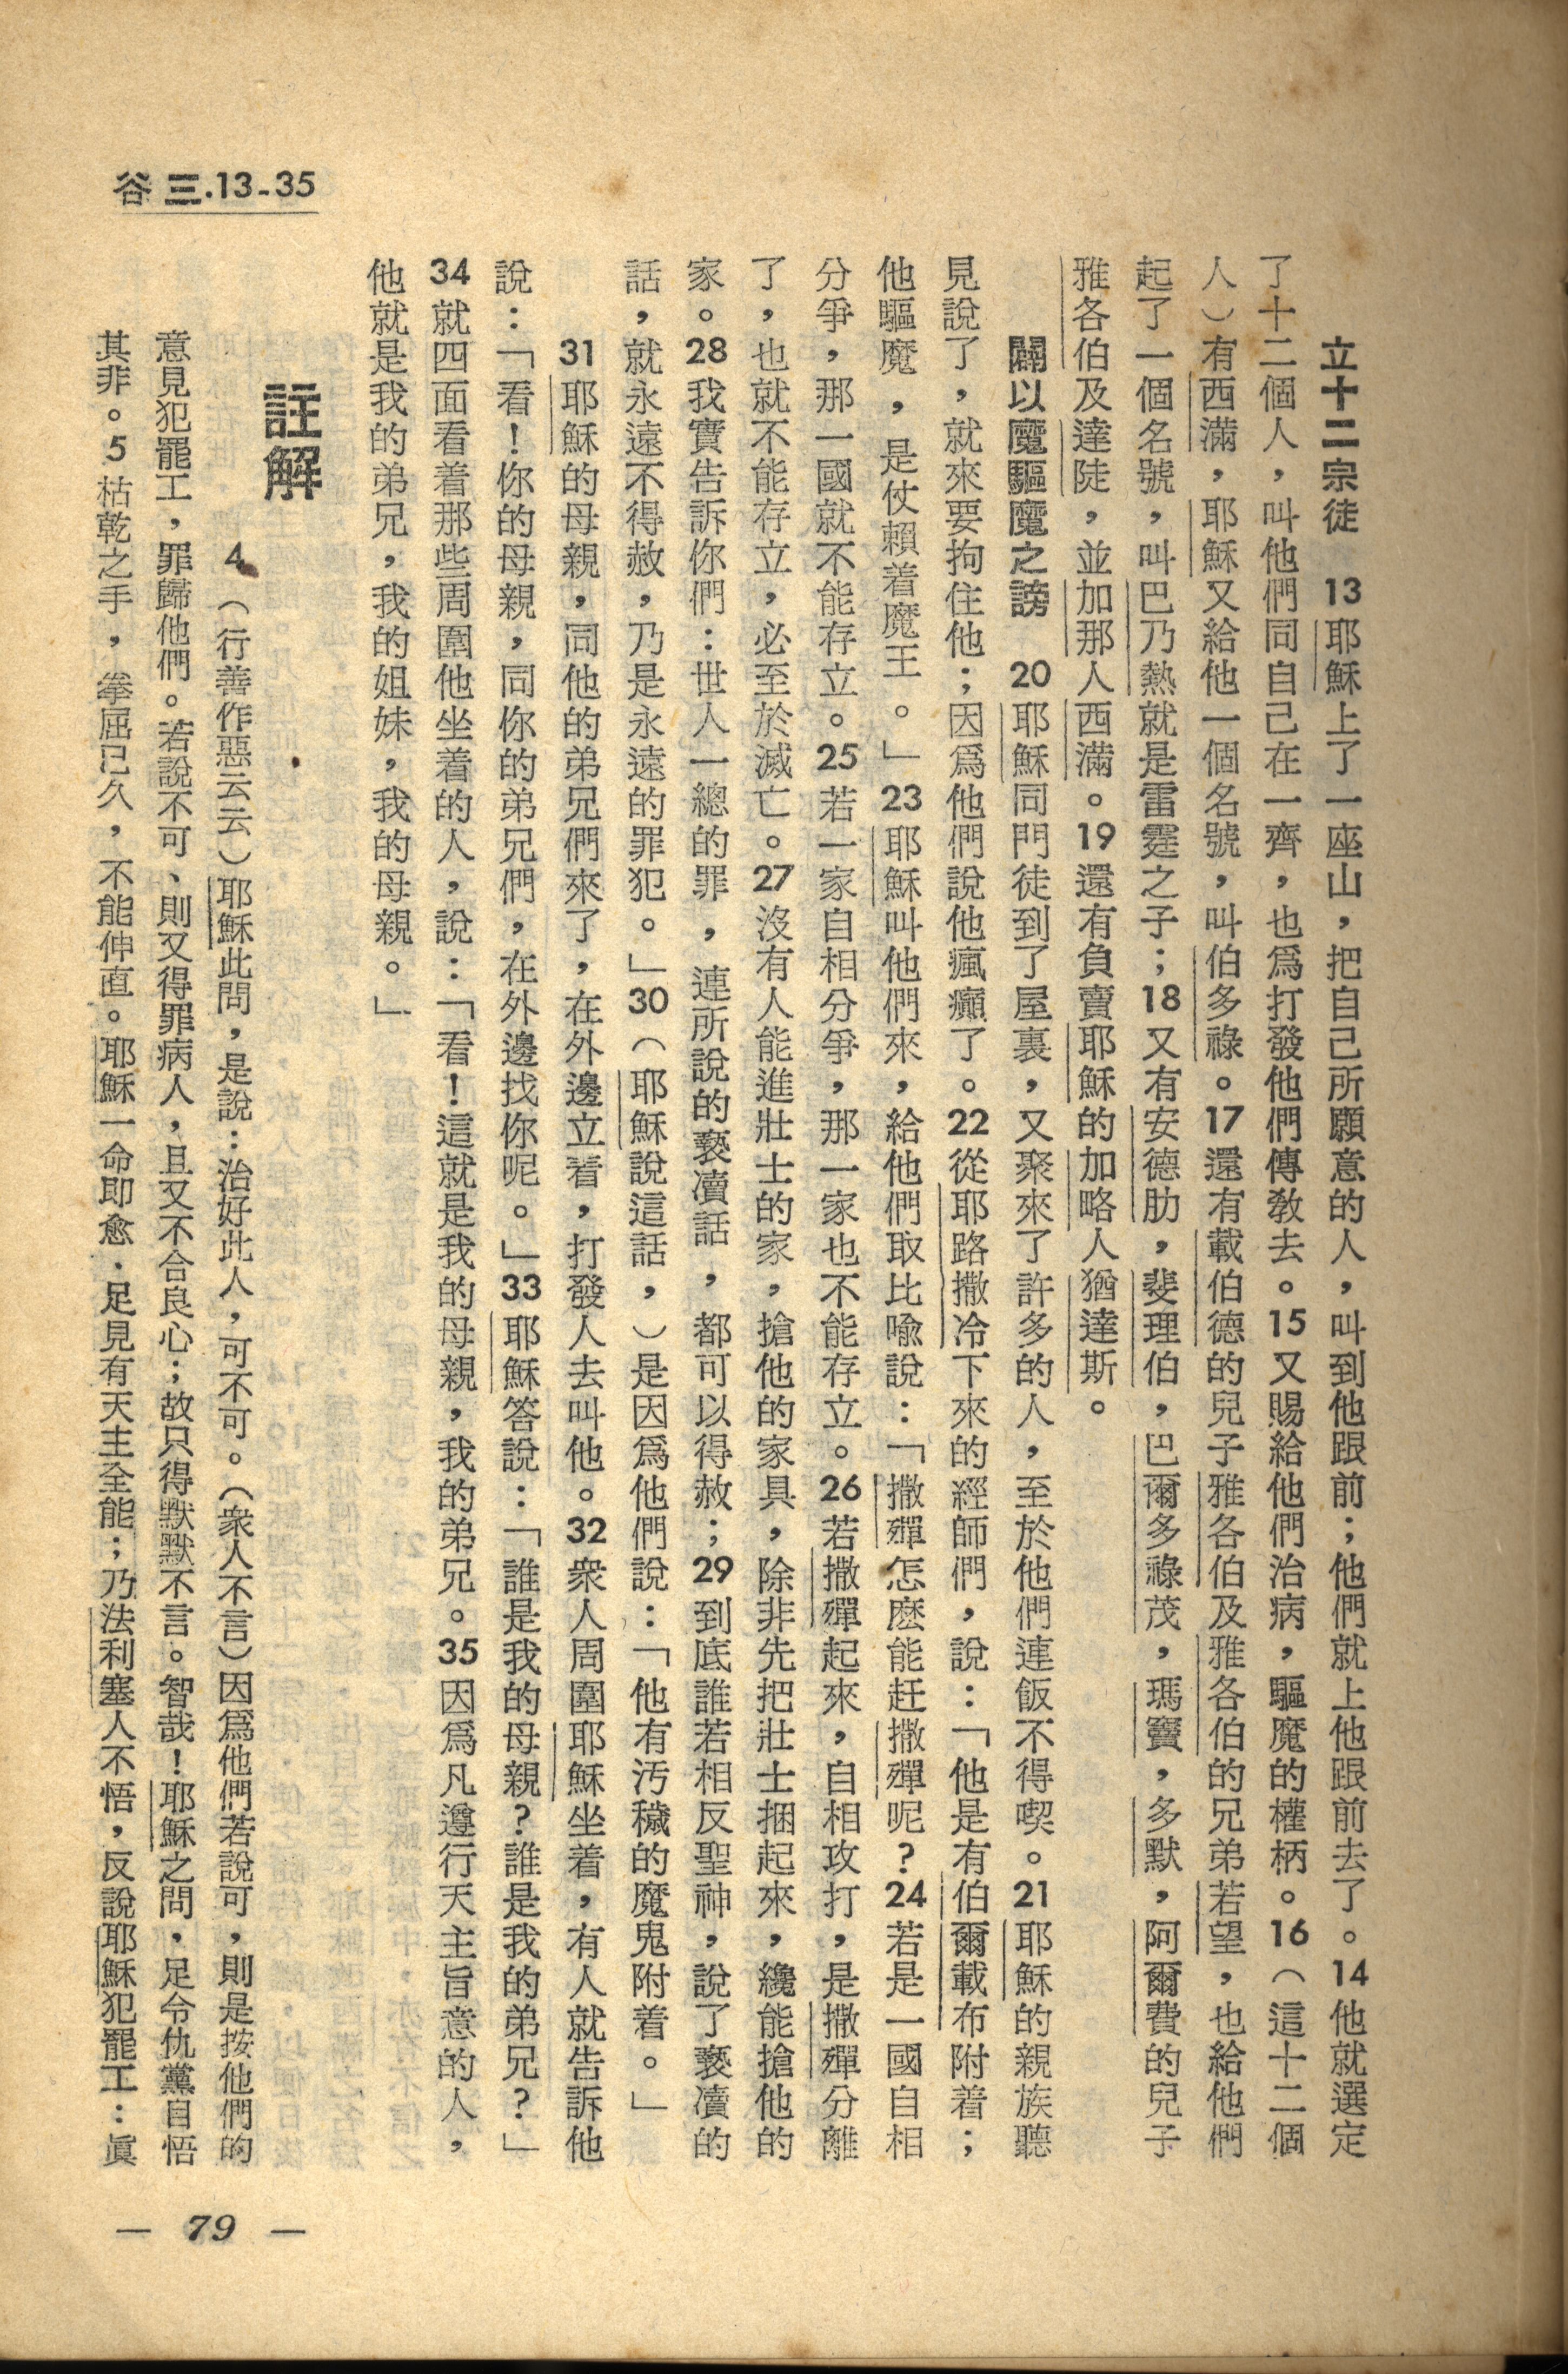 谷三.13-35
立十二宗徒　13耶穌上了一座山，把自己所願意的人，叫到他跟前；他們就上他跟前去了。14他就選定
了十二個人，叫他們同自己在一齊，也爲打發他們傳敎去。15又賜給他們治病，驅魔的權柄。16（這十二個
人）有西滿，耶穌又給他一個名號，叫伯多祿。17還有載伯德的兒子雅各伯及雅各伯的兄弟若望，也給他們
起了一個名號，叫巴乃熱就是雷霆之子；18又有安德肋，斐理伯，巴爾多祿茂，瑪竇，多默，阿爾費的兒子
雅各伯及達陡，並加那人西滿。19還有負賣耶穌的加略人猶達斯。
闢以魔驅魔之謗　20耶穌同門徒到了屋裏，又聚來了許多的人，至於他們連飯不得喫。21耶穌的親族聽
見說了，就來要拘住他；因爲他們說他瘋癲了。22從耶路撒冷下來的經師們，說：「他是有伯爾載布附着；
他驅魔，是仗賴着魔王。」23耶穌叫他們來，給他們取比喩說：「撒殫怎麽能赶撒殫呢？24若是一國自相
分爭，那一國就不能存立。25若一家自相分爭，那一家也不能存立。26若撒殫起來，自相攻打，是撒殫分離
了，也就不能存立，必至於滅亡。27沒有人能進壯士的家，搶他的家具，除非先把壯士捆起來，纔能搶他的
家。28我實告訴你們：世人一總的罪，連所說的褻瀆話，都可以得赦；29到底誰若相反聖神，說了褻瀆的
話，就永遠不得赦，乃是永遠的罪犯。」30（耶穌說這話，）是因爲他們說：「他有汚穢的魔鬼附着。」
31耶穌的母親，同他的弟兄們來了，在外邊立着，打發人去叫他。32衆人周圍耶穌坐着，有人就告訴他
說：「看！你的母親，同你的弟兄們，在外邊找你呢。」33耶穌答說：「誰是我的母親？誰是我的弟兄？」
34就四面看着那些周圍他坐着的人，說：「看！這就是我的母親，我的弟兄。35因爲凡遵行天主旨意的人，
他就是我的弟兄，我的姐妹，我的母親。」
註解
4（行善作惡云云）耶穌此問，是說：治好此人，可不可。（衆人不言）因爲他們若說可，則是按他們的
意見犯罷工，罪歸他們。若說不可、則又得罪病人，且又不合良心；故只得默默不言。智哉！耶穌之問，足令仇黨自悟
其非。5枯乾之手，拳屈已久，不能伸直。耶穌一命即愈．足見有天主全能；乃法利塞人不悟，反說耶穌犯罷工：眞
— 79 —